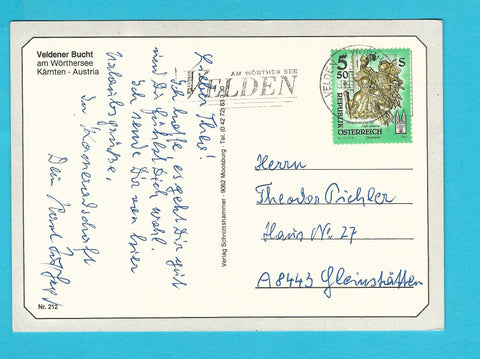 Veldener Bucht
am Wörthersee
Kärnten - Austria
Lieber Theo!
Ich hoffe, es geht Dir gut
und Du fühlst Dich wohl.
Ich sende Dir von hier
Urlaubsgrüße.
In Kameradschaft
Dein
Nr. 212
Verlag Schnottshammer · 9062 Moosburg · Tel. (0 42 72) 83
AM WÖRTHER SEE
VELDEN
5
50
S
REPUBLIK
ÖSTERREICH
Herrn
Theodor Pichler
Haus Nr. 27
A8443 Gleinstätten